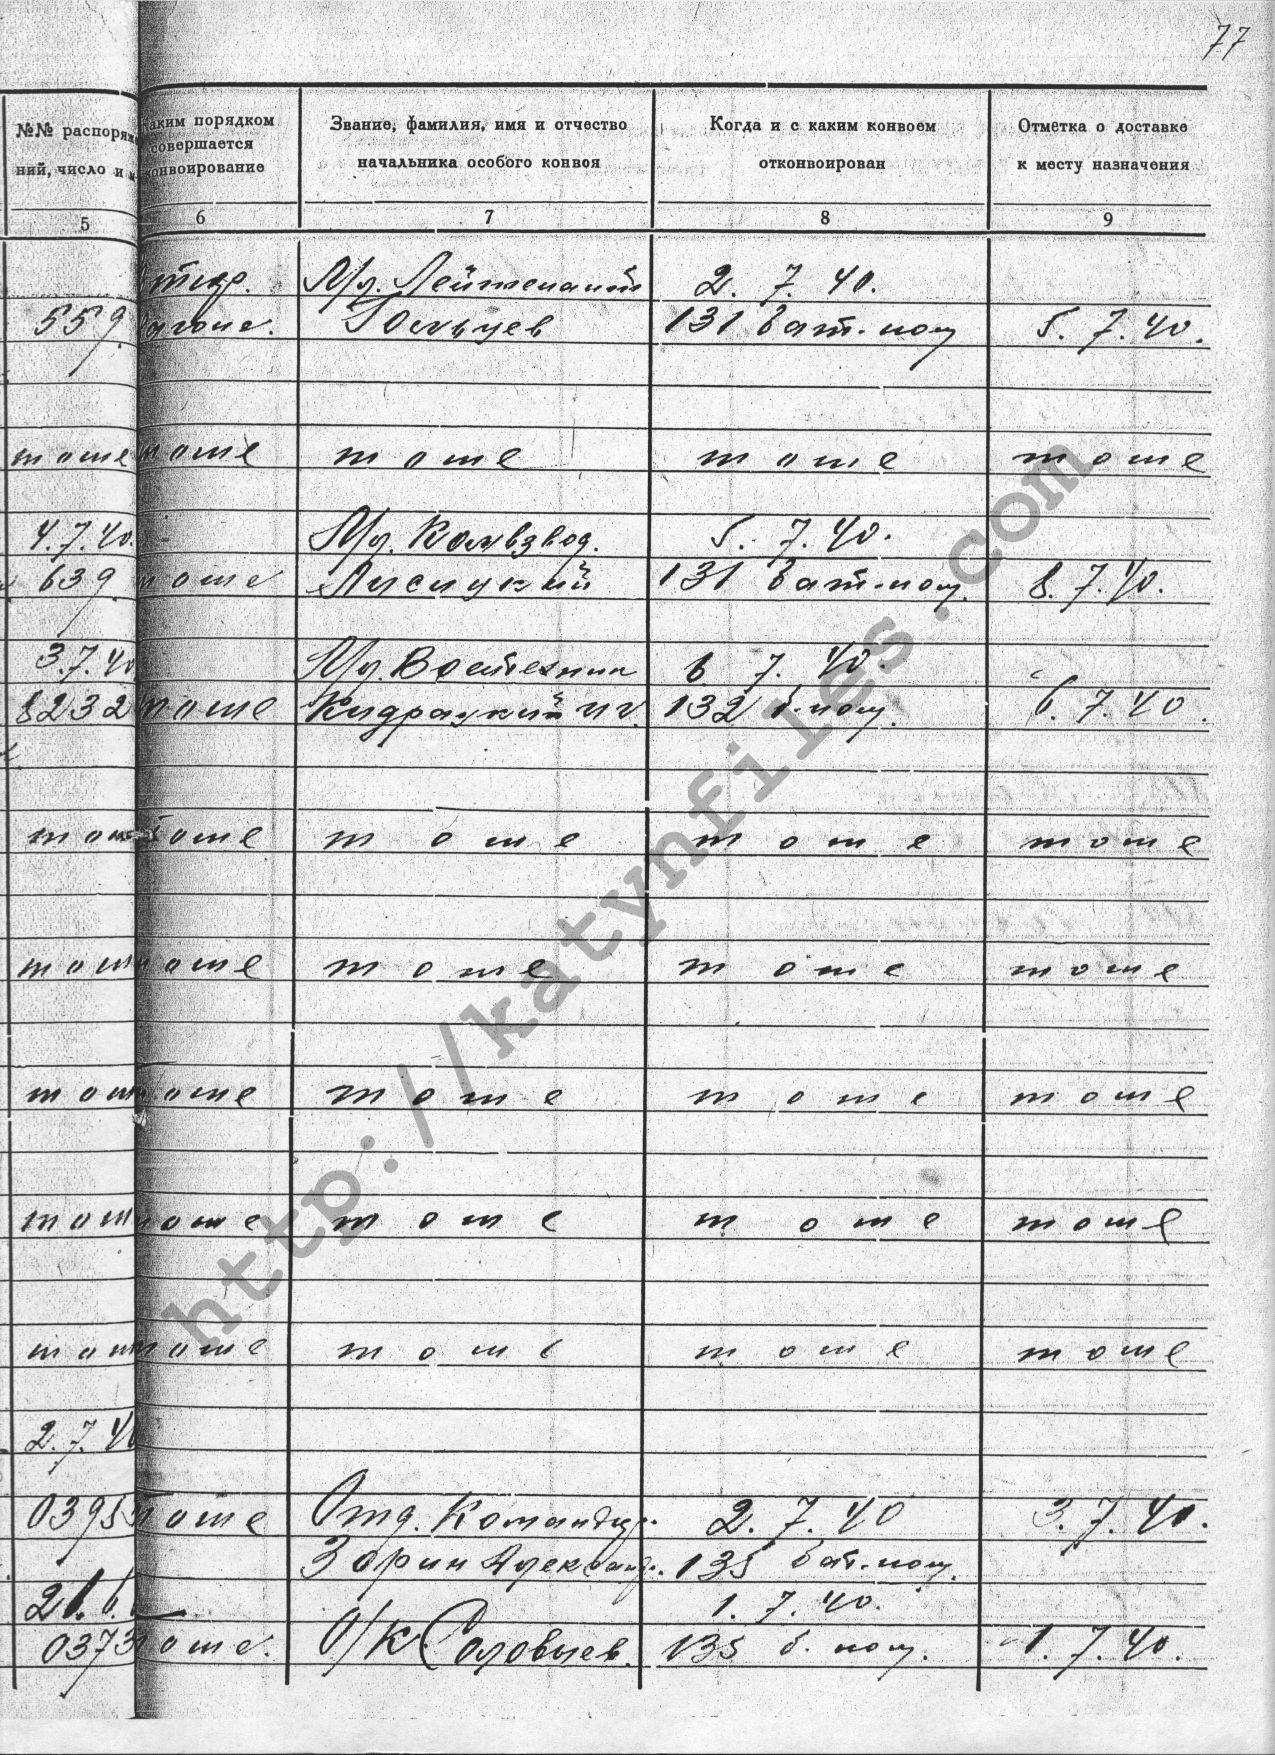 77
№№ распоряже
ний, число и м
Каким порядком
совершается
конвоирование
Звание, фамилия, имя и отчество
начальника особого конвоя
Когда и с каким конвоем
отконвоирован
Отметка о доставке
к месту назначения
5 6 7 8 9
Мл. Лейтенант 2. 7. 40.
559 вагоне. Гольцев 131 бат. кон 5. 7. 40.
тоже тоже тоже тоже тоже
4.7.40. Мл. Комвзвод. 5. 7. 40.
639 тоже Лисицкий 131 бат. кон. 8. 7. 40.
3.7.40 Мл. Воентехник 6 7. 40.
8232 тоже Кидрацкий 132 б. кон. 6. 7. 40.
тоже тоже тоже тоже тоже
тоже тоже тоже тоже
тоже тоже тоже тоже
тоже тоже тоже тоже
тоже тоже тоже тоже
2.7.40
0395 тоже Отд. Командир. 2. 7. 40 3. 7. 40.
Зорин Александр. 135 бат. кон.
21.6. 1. 7. 40.
0373 тоже. О/К Соловьев. 135 б. кон. 1. 7. 40.
http://katynfiles.com